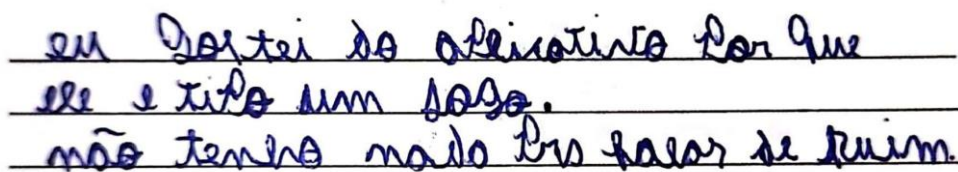 eu gostei do aplicativo por que
ele e tipo um jogo.
não tenho nada pra falar de ruim.